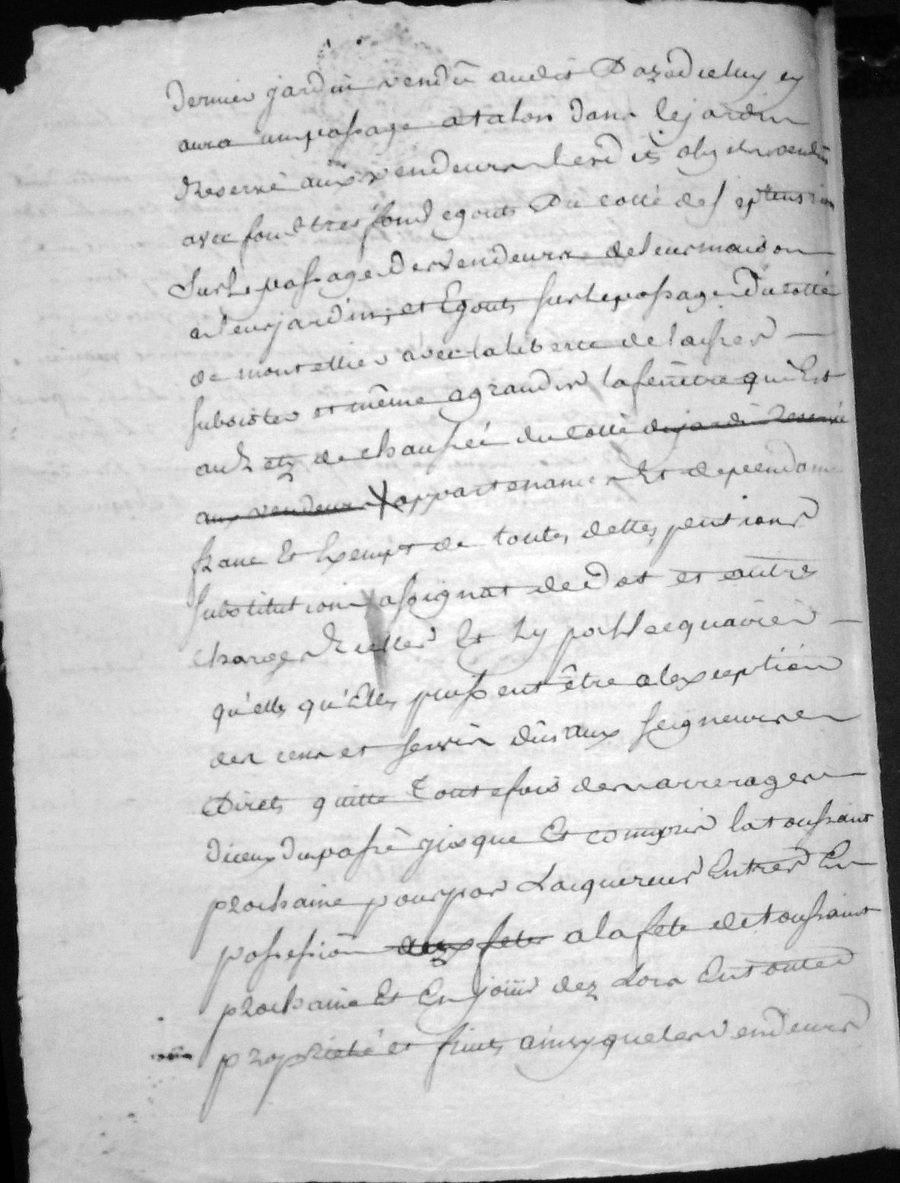 dernier jardin vendû audit Dazod icelluy y
aura un passage a talon dans le jardin
Reservé aux vendeurs lesdits objets vendûs
avec fond tres fond egouts Du cotté de septentrion
Sur le passage Des vendeurs de leur maison
a leur jardin, et Egouts sur le passage Du cotté
de montellier avec la liberté de laisser
subsister et même agrandir la fenêtre qui Est
au Retz de chaussée du cotté du jardin Reservé
aux vendeurs X appartenances Et dependances
franc Et Exempt de toutes dettes, pentions
substitutions assignat de Dot et autres
charges Réelles Et hypothecquaires
qu'elles qu'Elles puissent être a lexception
des cens et servis dûs aux seigneurs
Directs quitte toutesfois des arrerages
diceux du passé jusque Et compris la toussaint
prochaine pour par Lacquereur Entrer En
possession aux fetes a la fete de toussaint
prochaine Et En joüir dez Lors En toutte
proprieté et fruits ainsy que les vendeurs